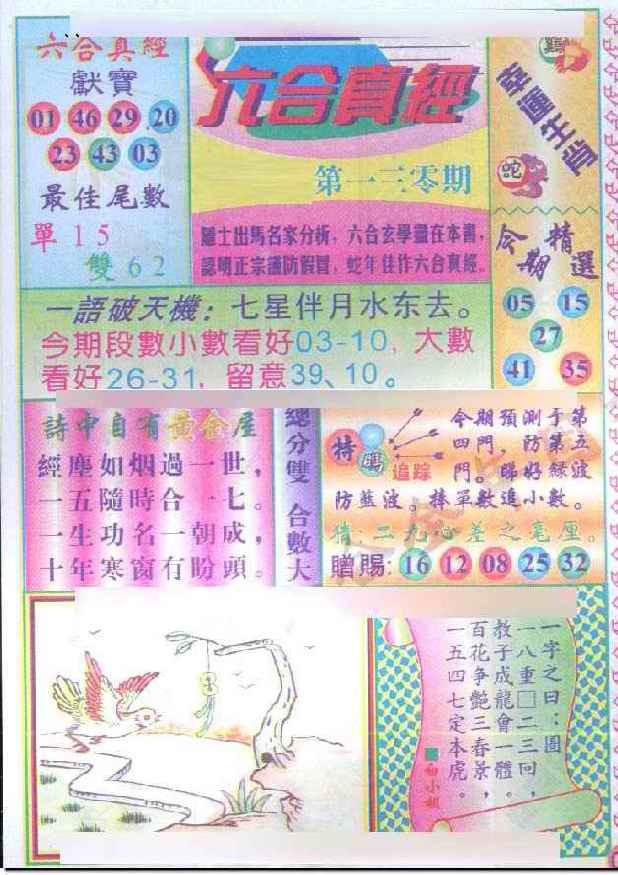 六合真經
獻寶
01 46 29 20
23 43 03
最佳尾數
單15
雙62
六合真經
第一三零期
隱士出馬名家分析，六合玄學盡在本書，
認明正宗謹防假冒，蛇年佳作六合真經。
雞
幸運生肖
蛇
今期精選
05 15
27
41 35
一語破天機：七星伴月水东去。
今期段數小數看好03-10，大數
看好26-31，留意39、10。
詩中自有黃金屋
經塵如烟過一世，
一五隨時合一七。
一生功名一朝成，
十年寒窗有盼頭。
總分雙 合數大
特 碼
追踪
今期預測于第
四門，防第五
門。睇好綠波
防藍波。棒單數追小數。
猜：二九心差之毫厘。
贈賜：16 12 08 25 32
一字之曰：圖
一八重□二三回，
教子成龍會一體。
百花争艷三春景，
一五四七定本虎。
■白小姐